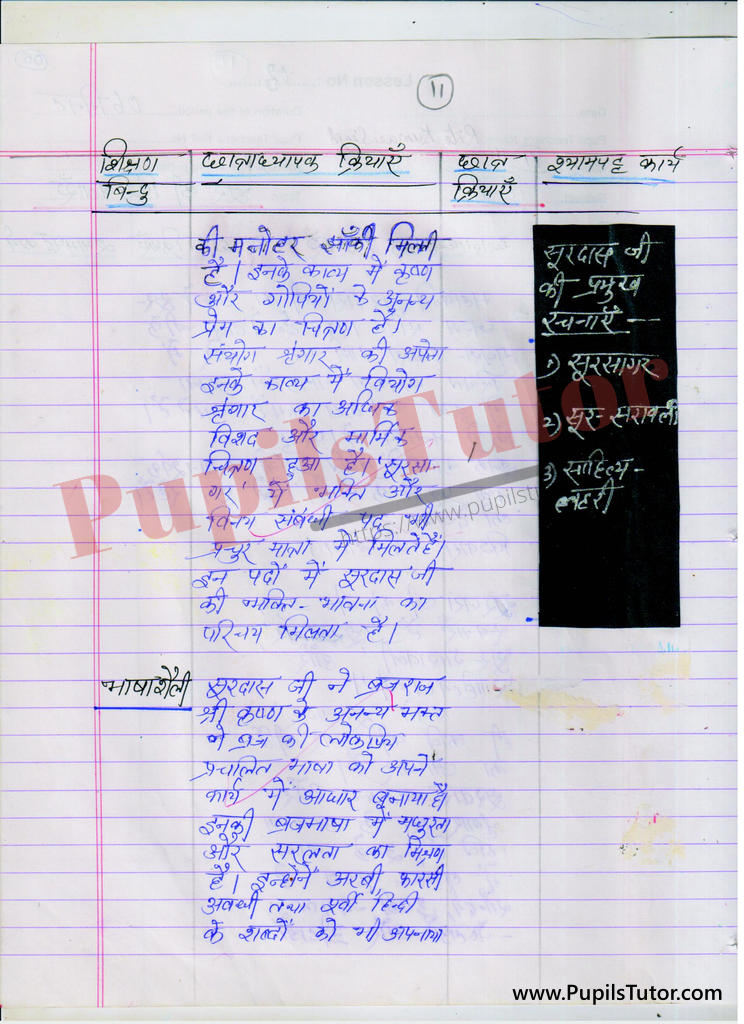 11
शिक्षण बिन्दु
छात्राध्यापक क्रियाएँ
छात्र क्रियाएँ
श्यामपट्ट कार्य
की मनोहर झाँकी मिलती
है। इनके काव्य में कृष्ण
और गोपियों के अनन्य
प्रेम का चित्रण है।
संयोग श्रृंगार की अपेक्षा
इनके काव्य में वियोग
श्रृंगार का अधिक
विशद और मार्मिक
चित्रण हुआ है। 'सूरसा-
गर' में भक्ति और
विनय संबंधी पद भी
प्रचुर मात्रा में मिलते हैं।
इन पदों में सूरदास जी
की भक्ति-भावना का
परिचय मिलता है।
सूरदास जी
की प्रमुख
रचनाएँ—
1) सूरसागर
2) सूर सरावली
3) साहित्य-
लहरी
भाषाशैली
सूरदास जी ने ब्रजराज
श्री कृष्ण के अनन्य भक्त
ने ब्रज की लोकप्रिय
प्रचालित भाषा को अपने
कार्य में आधार बनाया है।
इनकी ब्रजभाषा में मधुरता
और सरलता का मिश्रण
है। इन्होंनें अरबी, फारसी
अवधी तथा पूर्वी हिन्दी
के शब्दों को भी अपनाया
PupilsTutor
https://www.pupilstutor
www.PupilsTutor.com